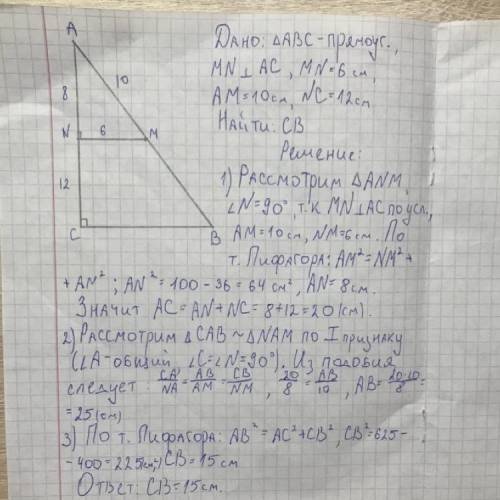 A
Дано: △ABC - прямоуг.,
10
MN ⊥ AC, MN = 6 см,
8
AM = 10 см, NC = 12 см
N 6 M
Найти: CB
Решение:
12
1) Рассмотрим △ANM,
∠N = 90°, т.к MN ⊥ AC по усл.,
C B
AM = 10 см, NM = 6 см. По
т. Пифагора: AM² = NM² +
+ AN²; AN² = 100 - 36 = 64 см², AN = 8 см.
Значит AC = AN + NC = 8 + 12 = 20 (см).
2) Рассмотрим △CAB ~ △NAM по I признаку
(∠A - общий, ∠C = ∠N = 90°). Из подобия
следует: CA/NA = AB/AM = CB/NM, 20/8 = AB/10, AB = 20·10/8 =
= 25 (см)
3) По т. Пифагора: AB² = AC² + CB², CB² = 625 -
- 400 = 225 (см²) CB = 15 см
Ответ: CB = 15 см.